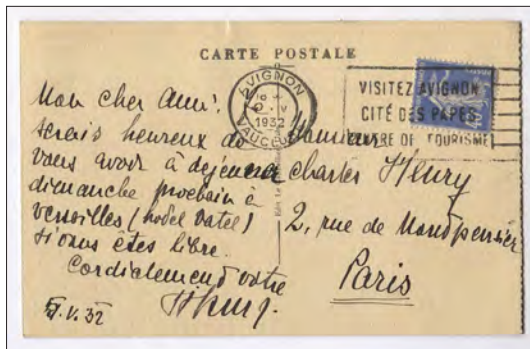 CARTE POSTALE
AVIGNON
1932
VAUCLUSE
VISITEZ AVIGNON
CITÉ DES PAPES
CENTRE DE TOURISME
Mon cher Ami!
serais heureux de
vous avoir à dejeuner
dimanche prochain à
Versailles (hotel Vatel)
si vous êtes libre.
Cordialement votre
.V.32
Monsieur
Charles Fleury
2, rue de Montpensier
Paris